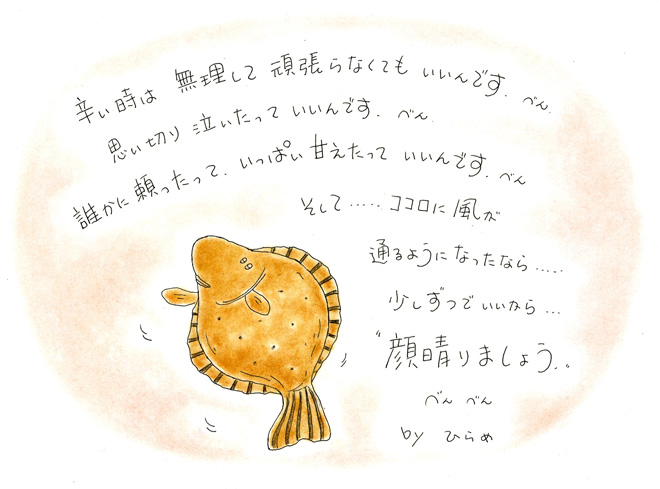 辛い時は 無理して 頑張らなくても いいんです. べん.
思い切り 泣いたって いいんです. べん.
誰かに 頼ったって. いっぱい 甘えたって いいんです. べん
そして..... ココロに 風が
通るように なったなら.....
少しずつで いいなら...
“顔晴りましょう„
べん べん
by ひらめ